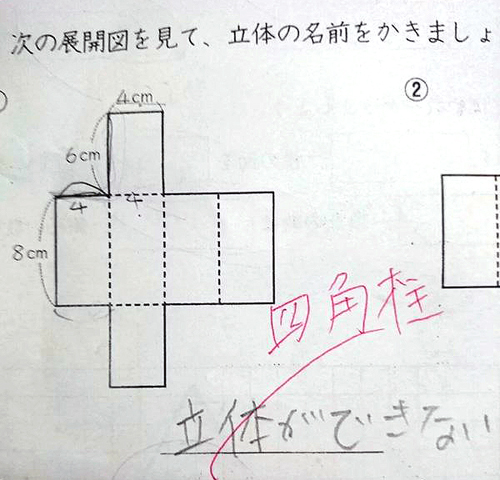 次の展開図を見て、立体の名前をかきましょ
②
4cm
6cm
4 4
8cm
四角柱
立体ができない